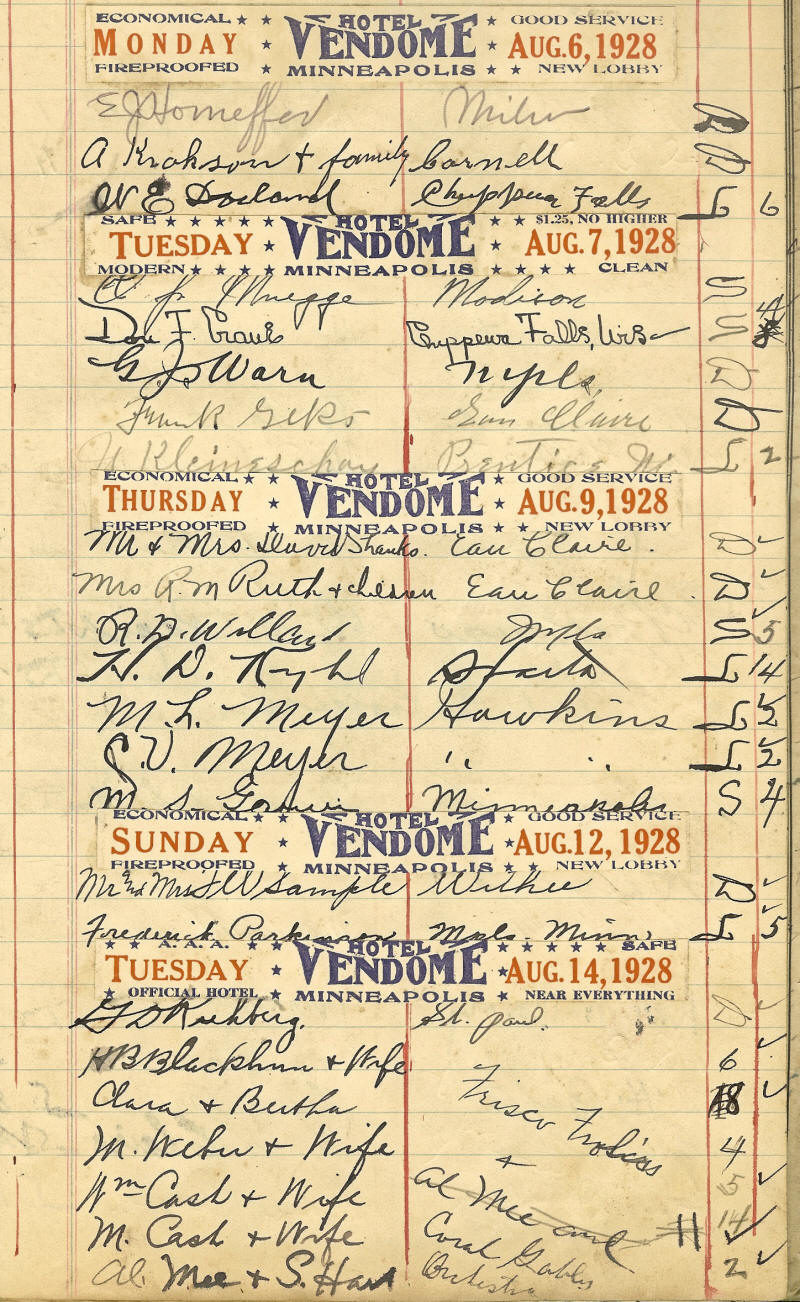 ECONOMICAL ★ ★ HOTEL ★ ★ GOOD SERVICE
MONDAY ★ VENDOME ★ AUG. 6, 1928
FIREPROOFED ★ MINNEAPOLIS ★ ★ NEW LOBBY
E J Homeffer
A Krokson + family Cornell D
W E Dorland Chippewa Falls L 6
SAFE ★ ★ ★ ★ ★ HOTEL ★ ★ $1.25, NO HIGHER
TUESDAY ★ VENDOME ★ AUG. 7, 1928
MODERN ★ ★ ★ ★ MINNEAPOLIS ★ ★ ★ ★ CLEAN
Muegge Madison S
F. Chippewa Falls, Wis S
G. J. Warn Mpls. D
Frank Geks Eau Claire D
Prentice Wi. L 2
ECONOMICAL ★ ★ HOTEL ★ GOOD SERVICE
THURSDAY ★ VENDOME ★ AUG. 9, 1928
FIREPROOFED ★ MINNEAPOLIS ★ ★ NEW LOBBY
Mr & Mrs. David Shanks. Eau Claire. D ✓
Mrs R. M Ruth + children Eau Claire. D ✓
R. D. Willard Mpls S 5
H. D. Kyhl Sparta L 14
M. L. Meyer Hawkins L 2
S. V. Meyer " " L 2
M. S. Minneapolis S 4
ECONOMICAL ★ ★ HOTEL ★ GOOD SERVICE
SUNDAY ★ VENDOME ★ AUG. 12, 1928
FIREPROOFED ★ MINNEAPOLIS ★ ★ NEW LOBBY
Mr and Mrs J W Sample Withee D ✓
Frederick Parkinson Mpls. Minn. L 5
★ ★ A. A. A. ★ HOTEL ★ ★ ★ ★ ★ SAFE
TUESDAY ★ VENDOME ★ AUG. 14, 1928
★ OFFICIAL HOTEL ★ MINNEAPOLIS ★ NEAR EVERYTHING
St. Paul. D ✓
H B Blackburn + Wife 6 ✓
Clara + Bertha Frisco Frolics 18 ✓
M. Weber + Wife + 4
Wm Cash + Wife Al Mee and 5 ✓
M. Cash + Wife Coral Gables 14 ✓
Al. Mee + S. Hart Orchestra 2 ✓